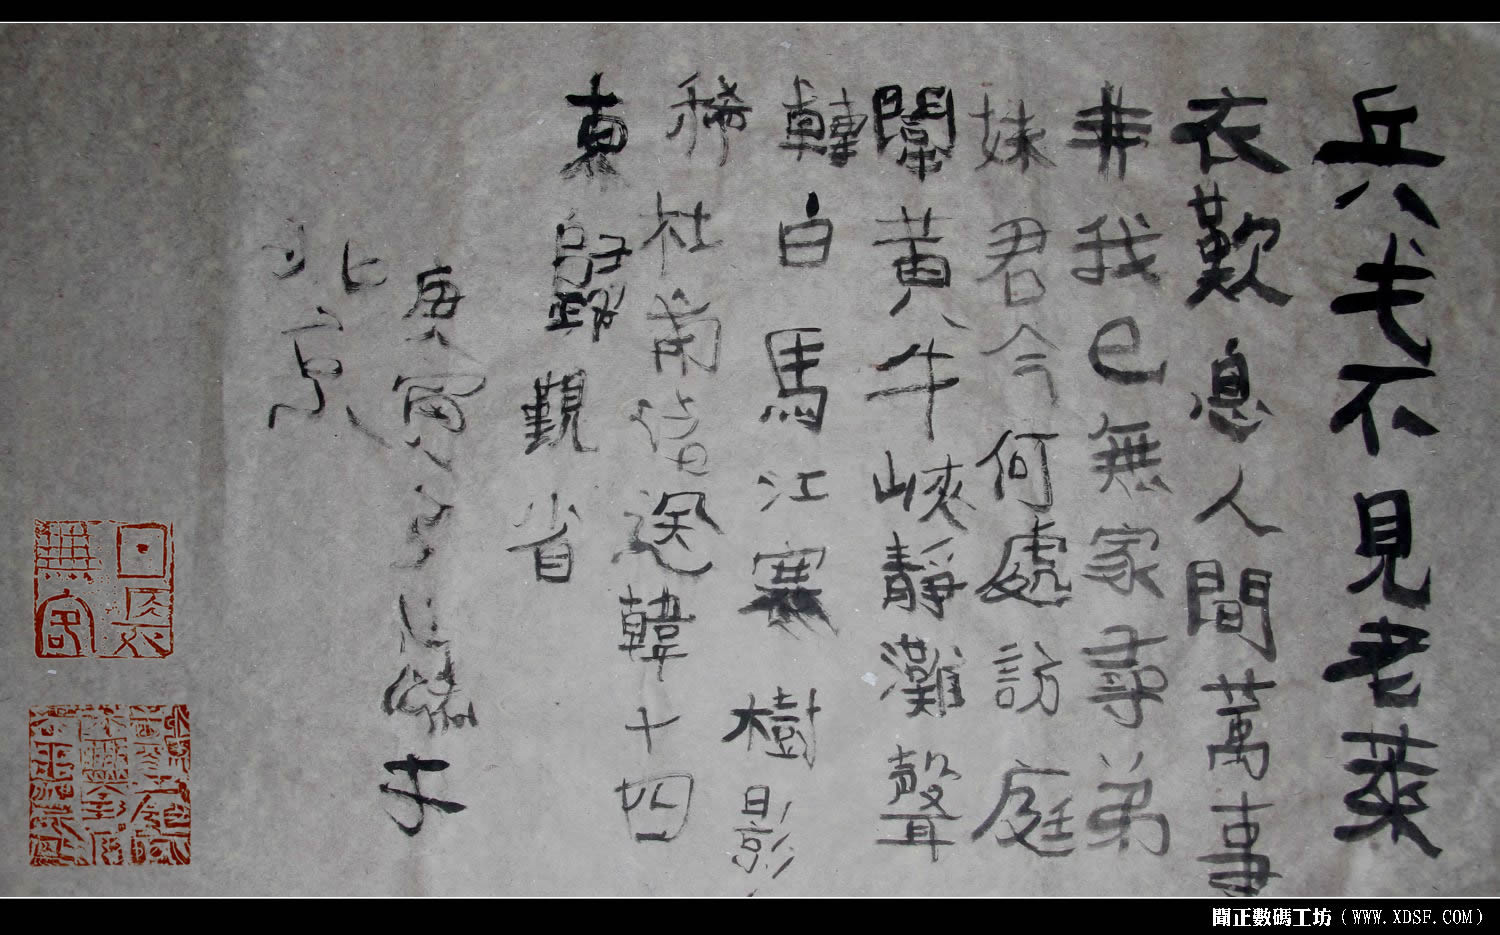 兵戈不見老萊
衣歎息人間萬事
非我已無家尋弟
妹君今何處訪庭
闈黃牛峽靜灘聲
轉白馬江寒樹影
稀杜甫送韓十四
東歸覲省
庚寅
北京
聞正數碼工坊（WWW.XDSF.COM）